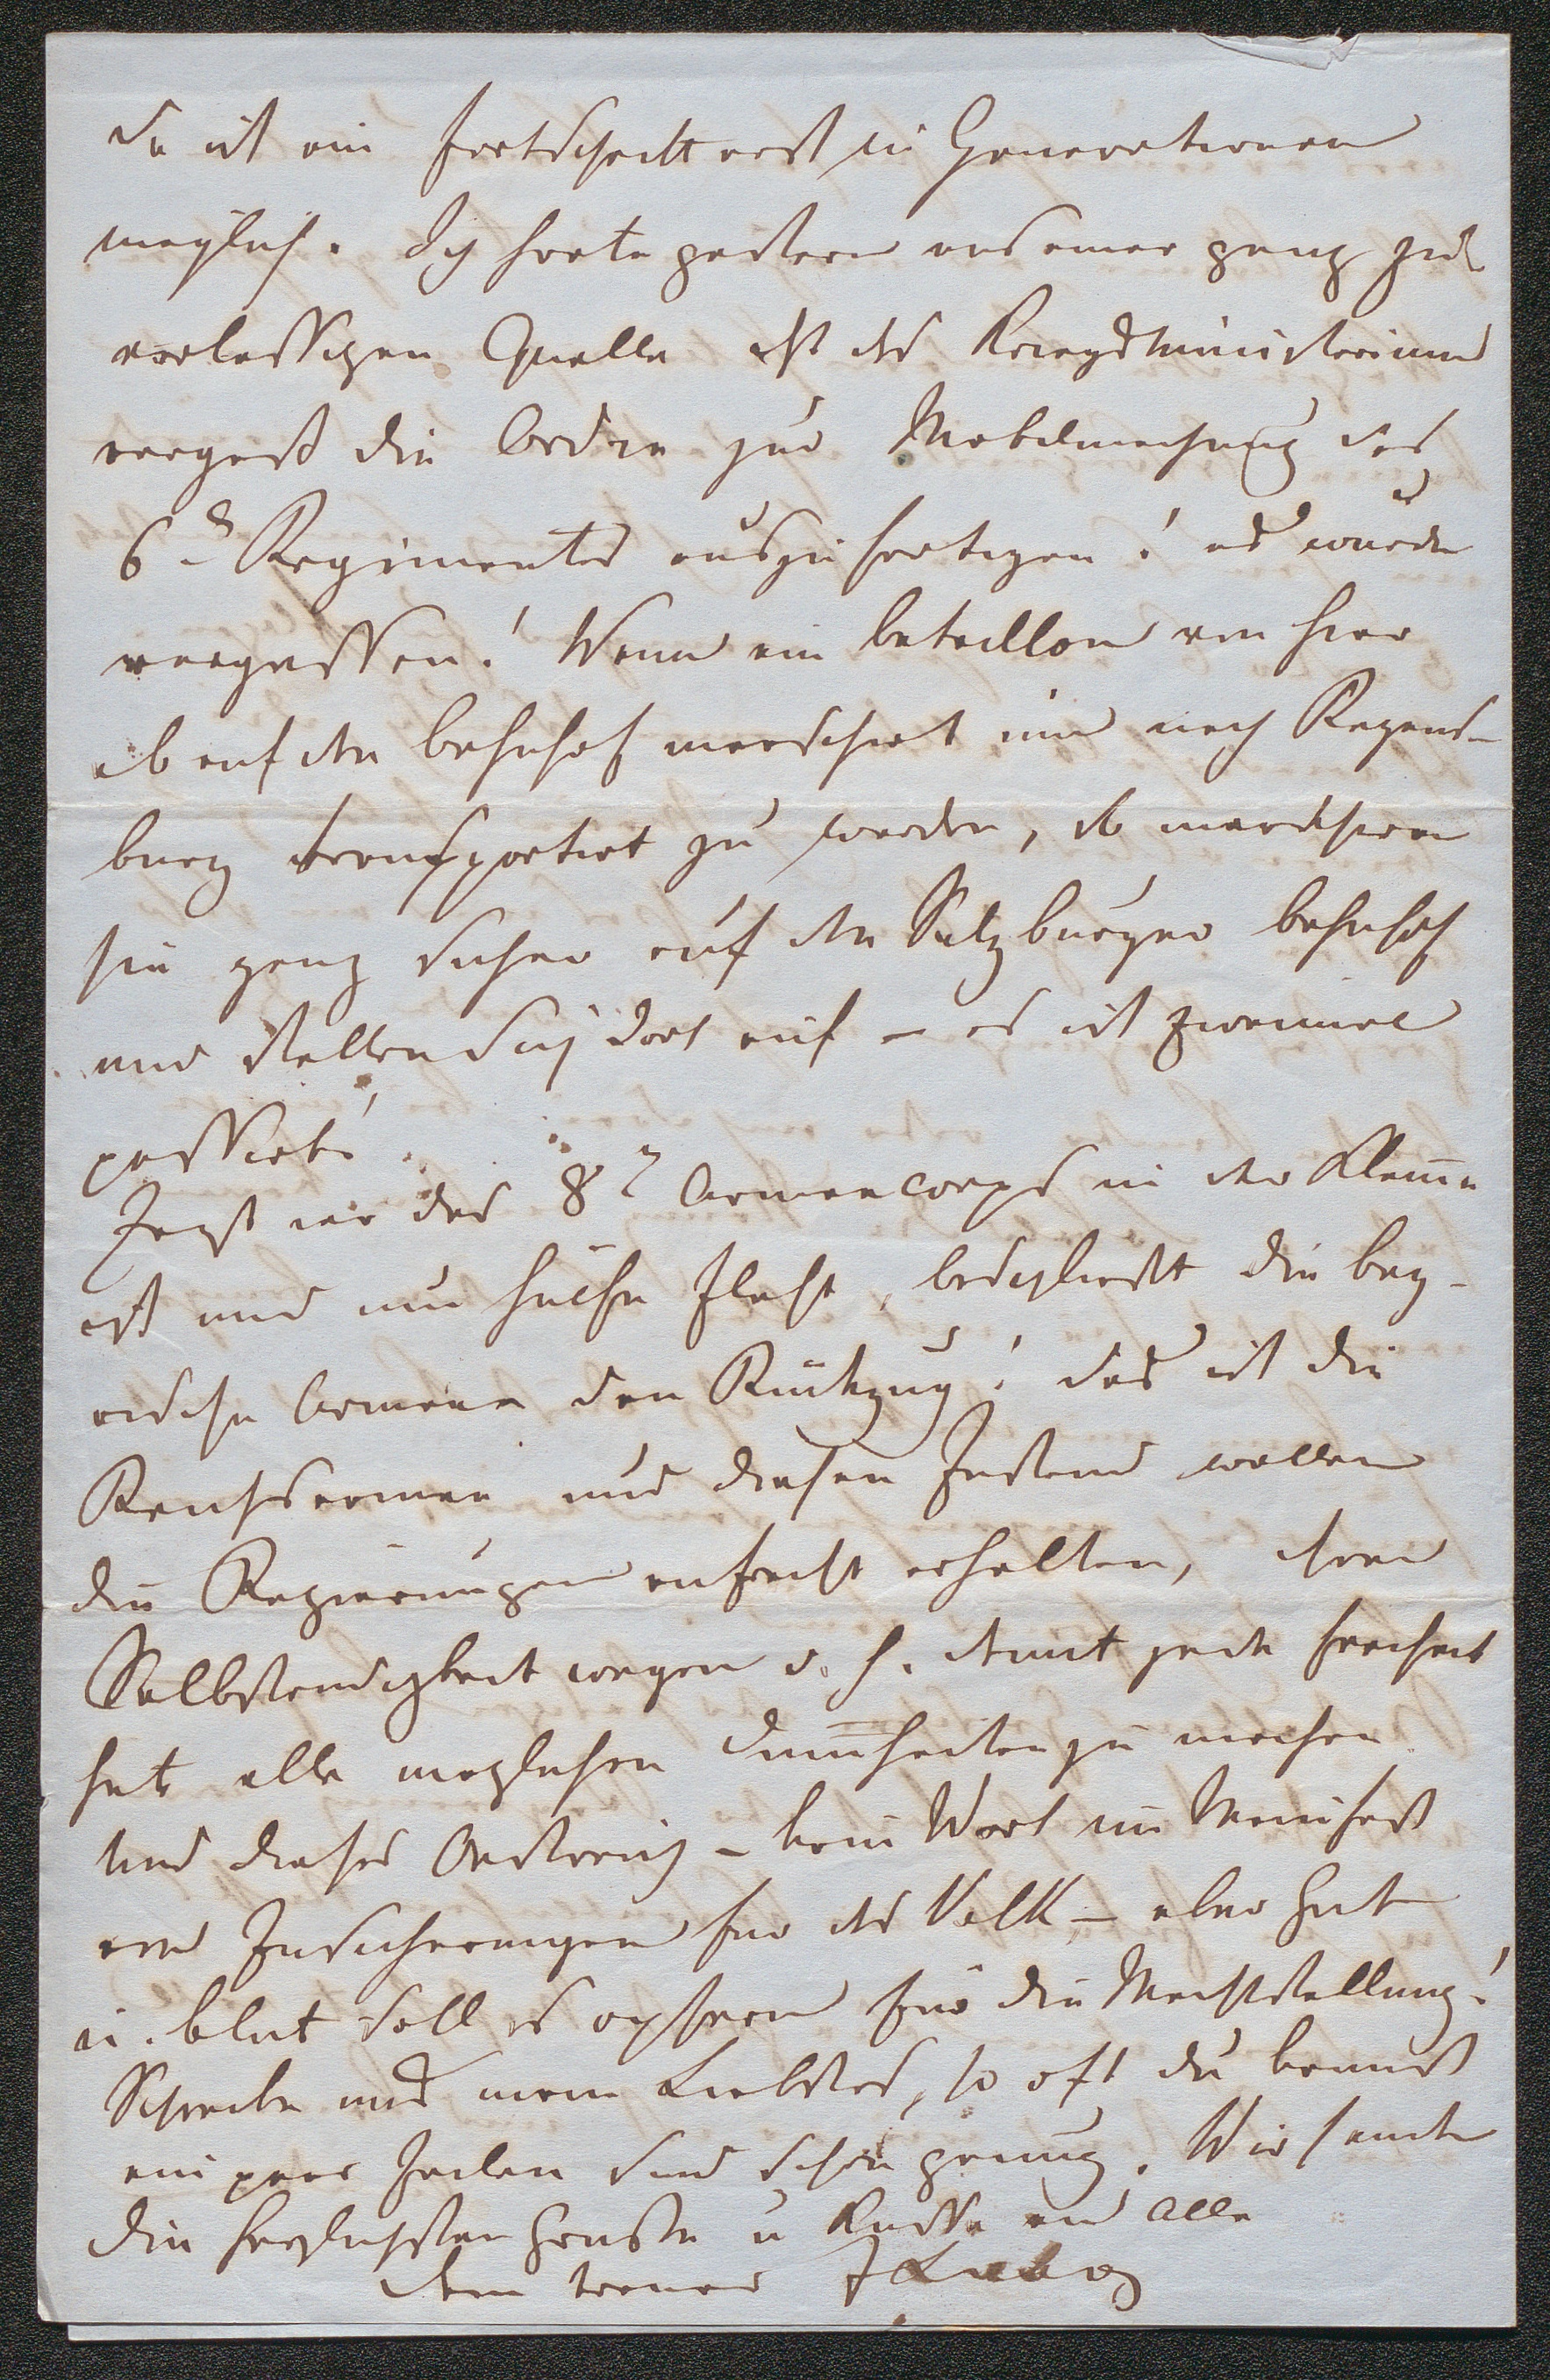 da ist ein Fortschritt erst in Generationen
möglich. Ich hörte gestern aus einer ganz zu
verlässigen Quelle daß das Kriegsministerium
vergaß die Ordre zur Mobilmachung des
6n Regimentes auszufertigen! es wurde
vergessen! Wenn ein Bataillon von hier
ab auf den Bahnhof marschirt um nach Regens-
burg transportirt zu werden, so marschiren
sie ganz sicher auf den Salzburger Bahnhof
und stellen sich dort auf – es ist zweimal
passirt!
Jezt wo das 8t Armeecorps in der Klem̅e
ist und um Hülfe fleht, beschließt die bay-
rische Armee den Rückzug! das ist die
Reichsarmee und diesen Zustand wollen
die Regierungen aufrecht erhalten, ihrer
Selbständigkeit wegen d. h. damit jede Freiheit
hat alle möglichen Dum̅heiten zu machen
Und dieses Oestreich – kein Wort im Manifest
von Zusicherungen für das Volk – aber Gut
u. Blut soll es opfern für die Machtstellung!
Schreibe uns mein Liebstes, so oft du kannst
ein paar Zeilen sind schon genug. Wir senden
die herzlichsten Grüße u Küsse an Alle
Dein treuer J Liebig